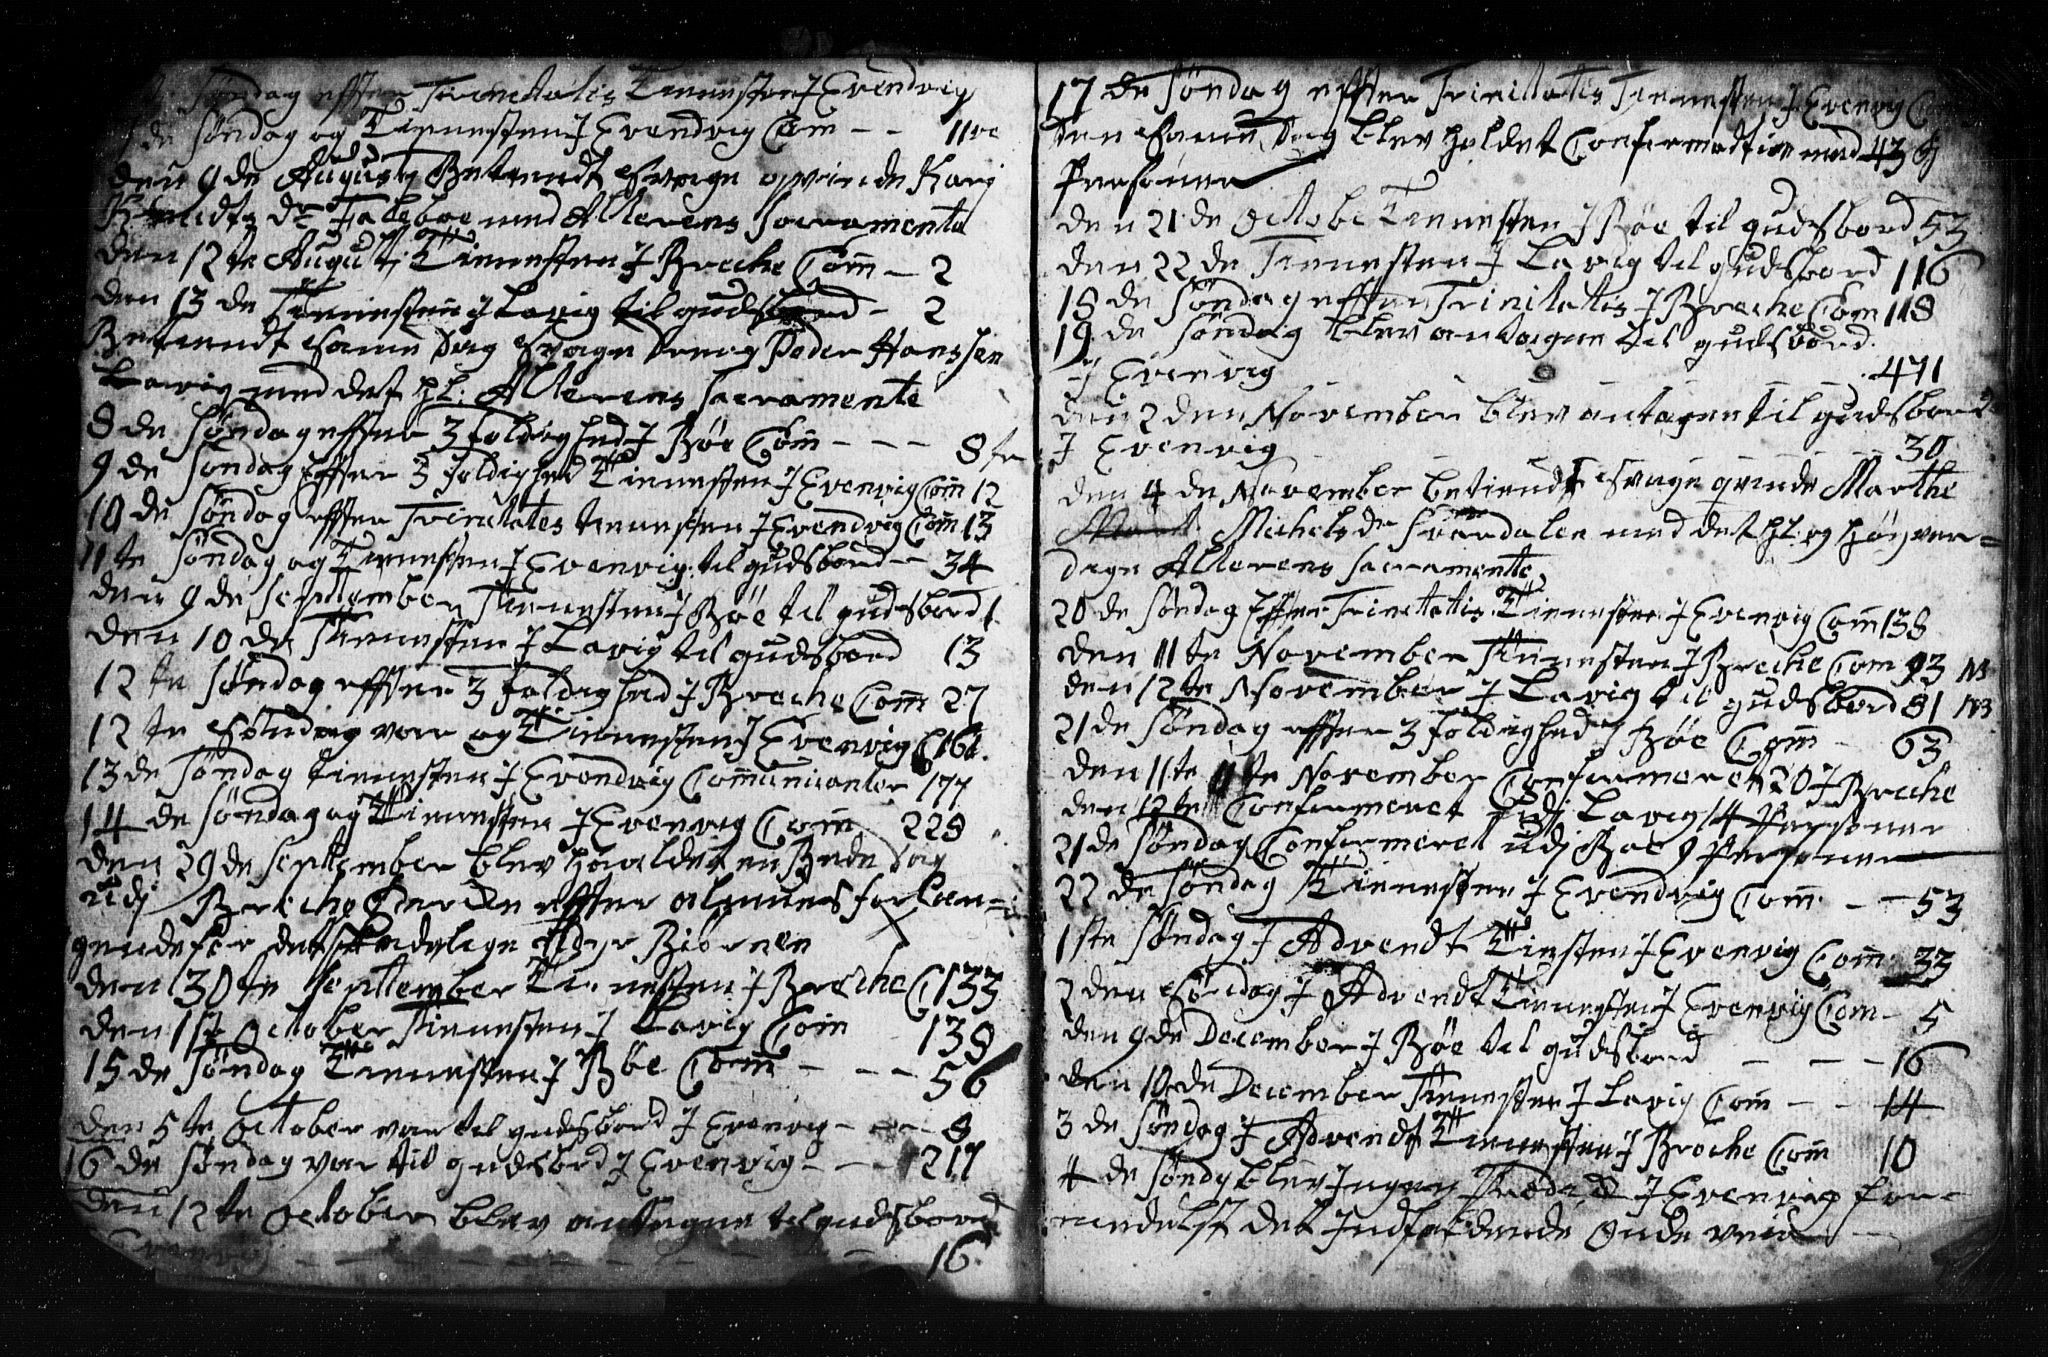 Søndag effter Trinetatis Tienesten J Evendvig
7 de Søndag og Tienesten J Evendvig Com - - 11ve
den 9 de Augusti Betiendt Svage qvinde Kari
dr Taleboe med Alterens Sacramente
den 12 te Augusti Tienesten J Breche Com - 2
den 13 de Tienesten J Lavig til gudsbord - 2
Betiendt samme Dag Svage Dreng Peder Hanssen
Lavig med det hl: Alterens Sacramente
8 de Søndag effter 3 foldighed J Bøe Com - - - 8 te
9 de Søndag effter 3 foldighed Tienesten J Evenvig Com 12
10 de Søndag effter Trinetates tienesten J Evendvig Com 13
11 te Søndag og Tienesten J Evenvig til gudsbord - 34
den 9 de September Tienesten J Bøe til gudsbord 1
den 10 de Tienesten J Lavig til gudsbord 13
12 te Søndag effter 3 foldighed J Breche Com 27
12 te Søndag var og Tienesten J Evenvig C 161.
13 de Søndag tienesten J Evendvig Communicanter 177
14 de Søndag og Tienesten J Evenvig Com 228
den 29 de September blev haaldet en Bede Dag
udj Breche effter alenes for Lan=
gende for det skadelige dyr Biørnen
den 30 te September Tienesten J Breche C 133
den 1st October Tienesten J Lavig Com 138
15 de Søndag Tienesten J Bøe Com - - - 56
den 5 te October var til gudsbord J Evenvig - - - 8
16 de Søndag var til gudsbord J Evenvig - - - 217
den 12 te October blev antagne til gudsbord
J Evenvig - - - - - - - 16
17 de Søndag effter Trinitatis Tienesten J Evenvig Com
den samme Dag blev holdet Confermation med 43
Personer
den 21 de Octobe Tienesten J Bøe til gudsbord 53
den 22 de Tienesten J Lavig til gudsbord 116
18 de Søndag effter Trinitatis J Breche Com 118
19 de Søndag blev antagne til gudsbord
J Evenvig 471
den 2 den November blev antagen til gudsbord
J Evenvig - - - - - 30
den 4 de November betiendt Svage qvinde Marthe
Michelsdr Sværdalen med det hl: og høyver=
dige Alterens Sacramente
20 de Søndag Effter Trinitatis Tienesten J Evenvig Com 138
den 11 te November Tienesten J Breche Com 93 NB
den 12 te November J Lavig til gudsbord 81 NB
21 de Søndag effter 3 foldighed J Bøe Com - 63
den 11 te November Confermeret 20 J Breche
den 12 te Confermeret udj Lavig 14 Personer
21 de Søndag Confermeret udj Bøe 9 Personer
22 de Søndag Tienesten J Evendvig Com - - 53
1 ste Søndag J Advendt Tienesten J Evenvig Com 33
2 den Søndag J Advendt Tienesten J Evenvig Com - 5
den 9 de December J Bøe til gudsbord - - - 16
den 10 de December Tienesten J Lavig Com - - 14
3 de Søndag J Advendt Tienesten J Breche Com 10
4 de Søndag blev Jngen J Evenvig for=
medelst det Jndfaldende Onde veir